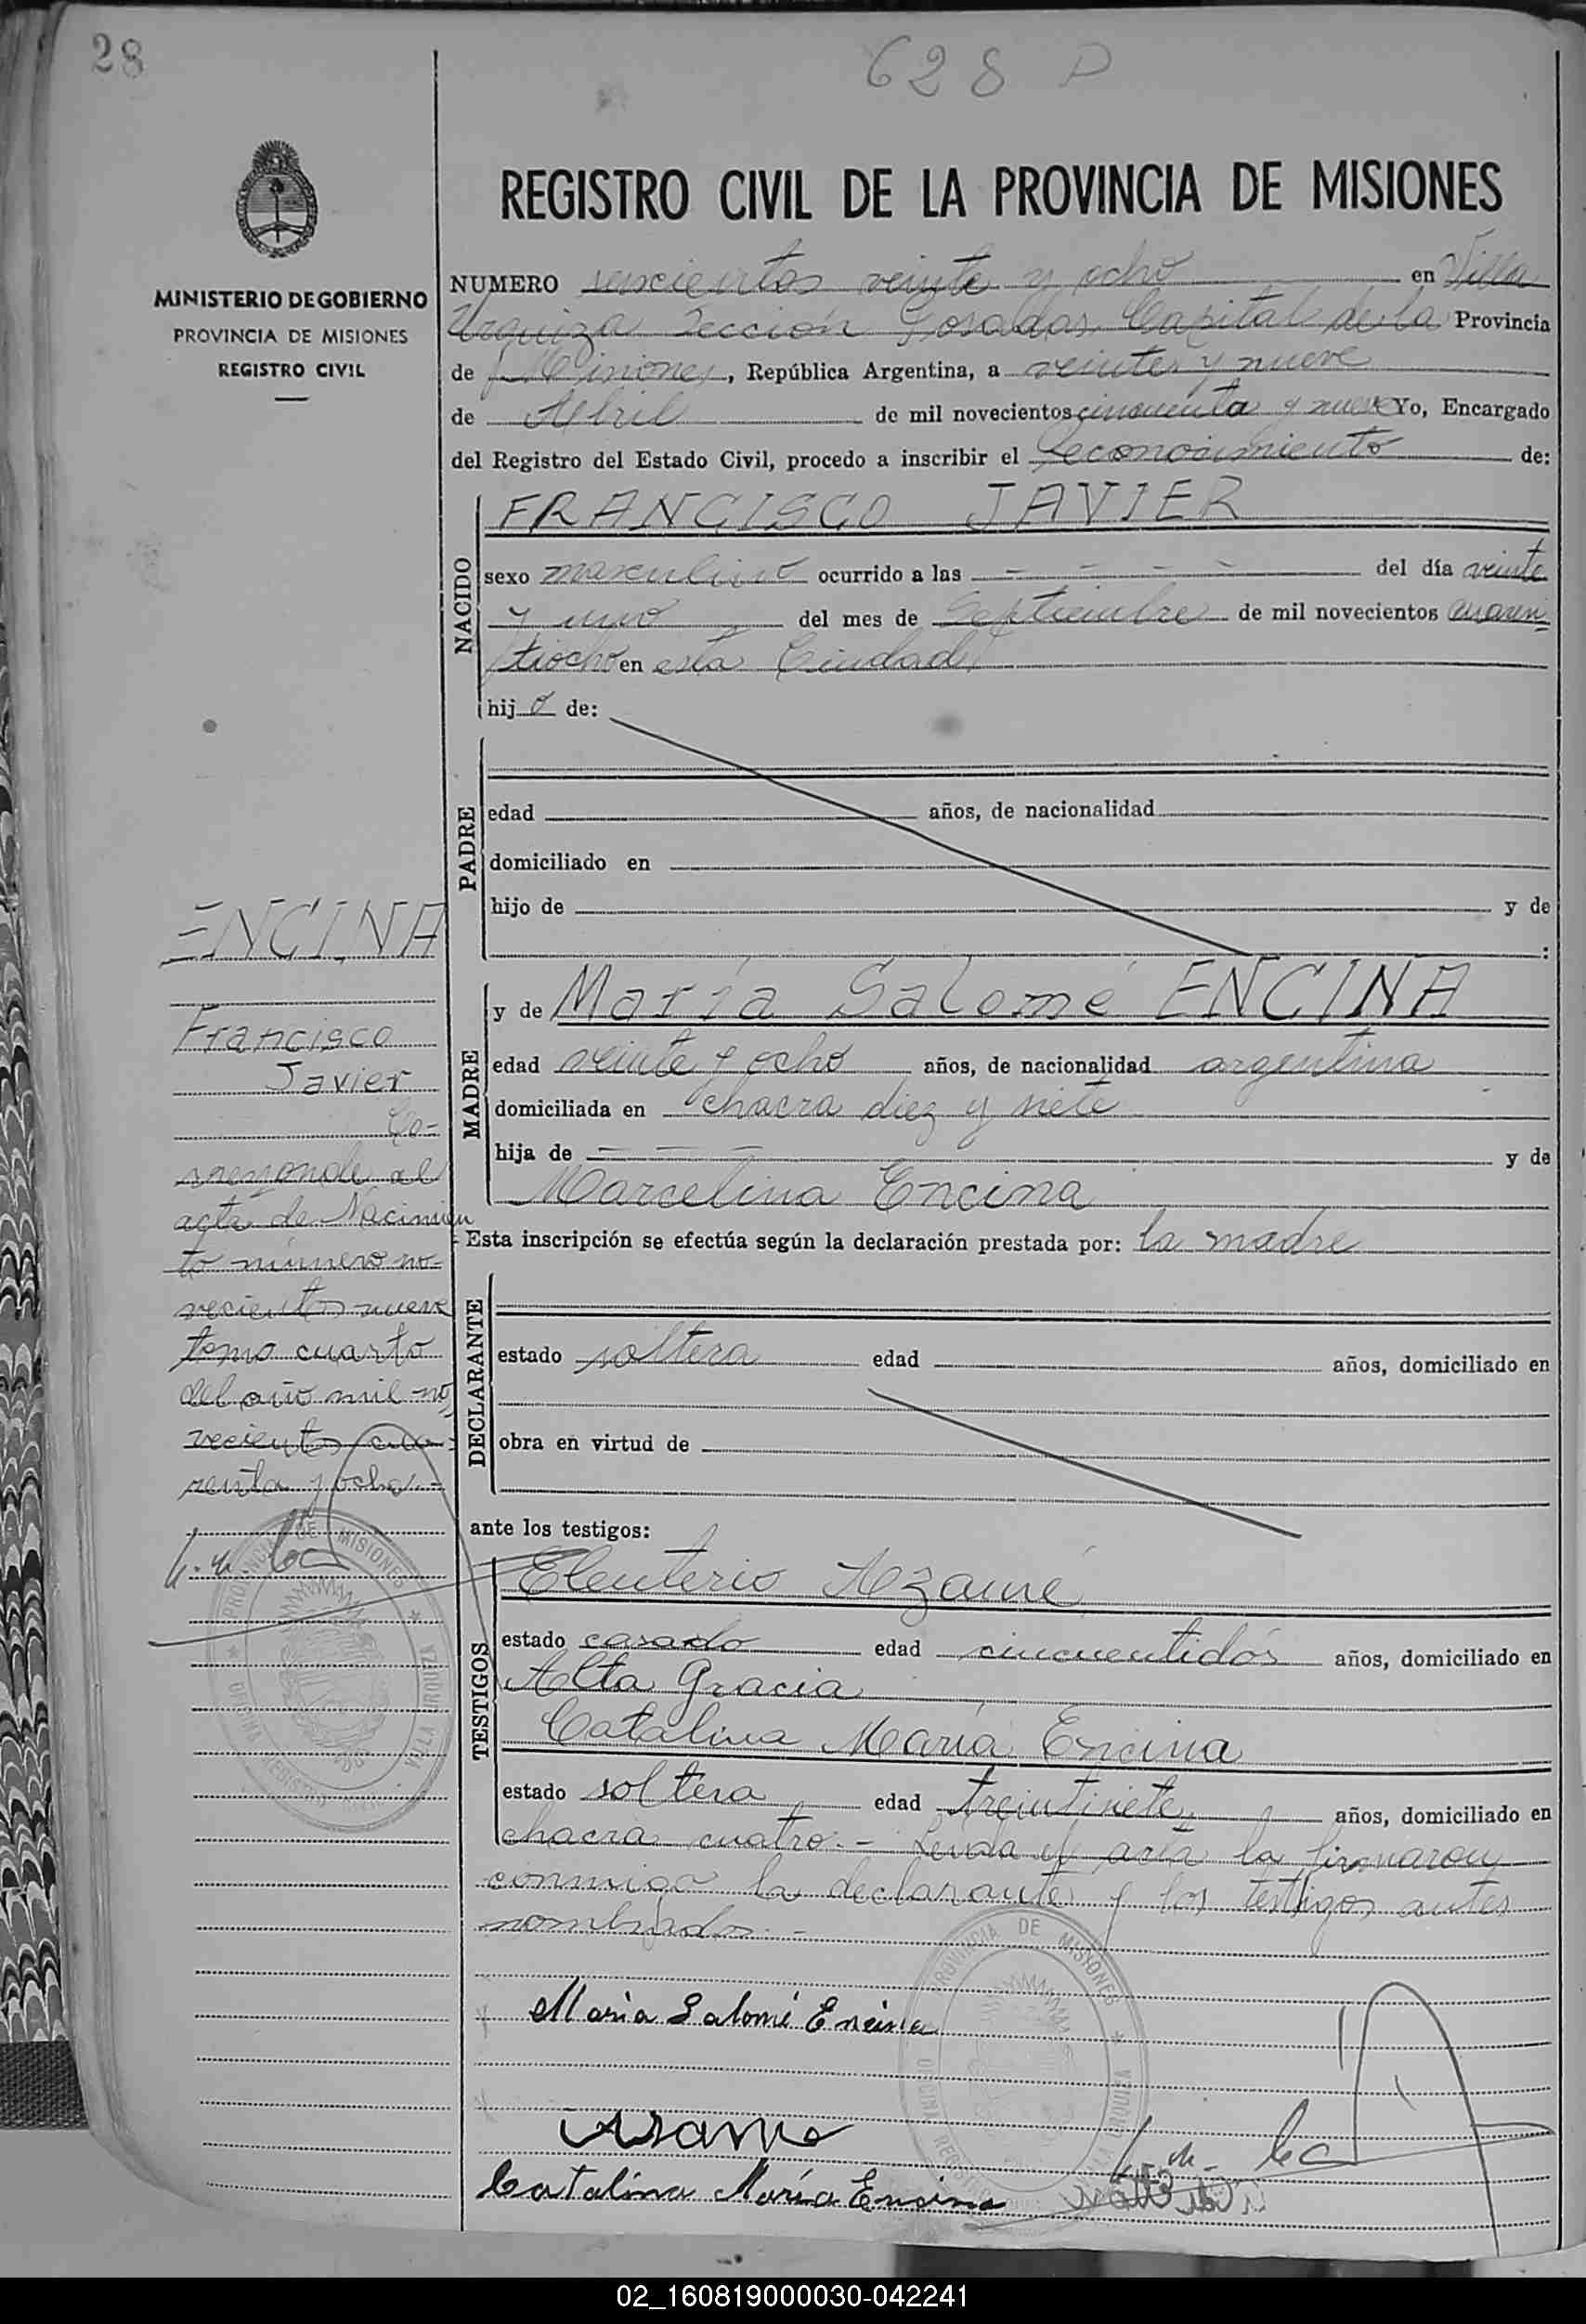 28
628 P
REGISTRO CIVIL DE LA PROVINCIA DE MISIONES
MINISTERIO DE GOBIERNO
PROVINCIA DE MISIONES
REGISTRO CIVIL
NUMERO seiscientos veinte y ocho en Villa
Urquiza Sección Posadas Capital de la Provincia
de Misiones, República Argentina, a veinte y nueve
de Abril de mil novecientos cincuenta y nueve Yo, Encargado
del Registro del Estado Civil, procedo a inscribir el Reconocimiento de:
NACIDO
FRANCISCO JAVIER
sexo masculino ocurrido a las - - - - del día veinte
y uno del mes de Septiembre de mil novecientos cuaren
tiocho en esta Ciudad
hij o de:
PADRE
edad años, de nacionalidad
domiciliado en
hijo de y de
:
MADRE
y de María Salomé ENCINA
edad veinte y ocho años, de nacionalidad argentina
domiciliada en chacra diez y siete
hija de - - - y de
Marcelina Encina
Esta inscripción se efectúa según la declaración prestada por: la madre
DECLARANTE
estado soltera edad años, domiciliado en
obra en virtud de
ante los testigos:
TESTIGOS
Eleuterio Azamé
estado casado edad cincuentidós años, domiciliado en
Alta Gracia
Catalina María Encina
estado soltera edad treintisiete años, domiciliado en
chacra cuatro.- Leída el acta la firmaron
conmigo la declarante y los testigos antes
nombrados.-
María Salomé Encina
Catalina María Encina
ENCINA
Francisco
Javier
Co-
rresponde al
acta de Nacimien
to número no-
vecientos nueve
tomo cuarto
del año mil no
vecientos cua-
renta y ocho.-
PROVINCIA DE MISIONES
OFICINA REGISTRO CIVIL
VILLA URQUIZA
PROVINCIA DE MISIONES
OFICINA REGISTRO
VILLA URQUIZA
02_160819000030-042241